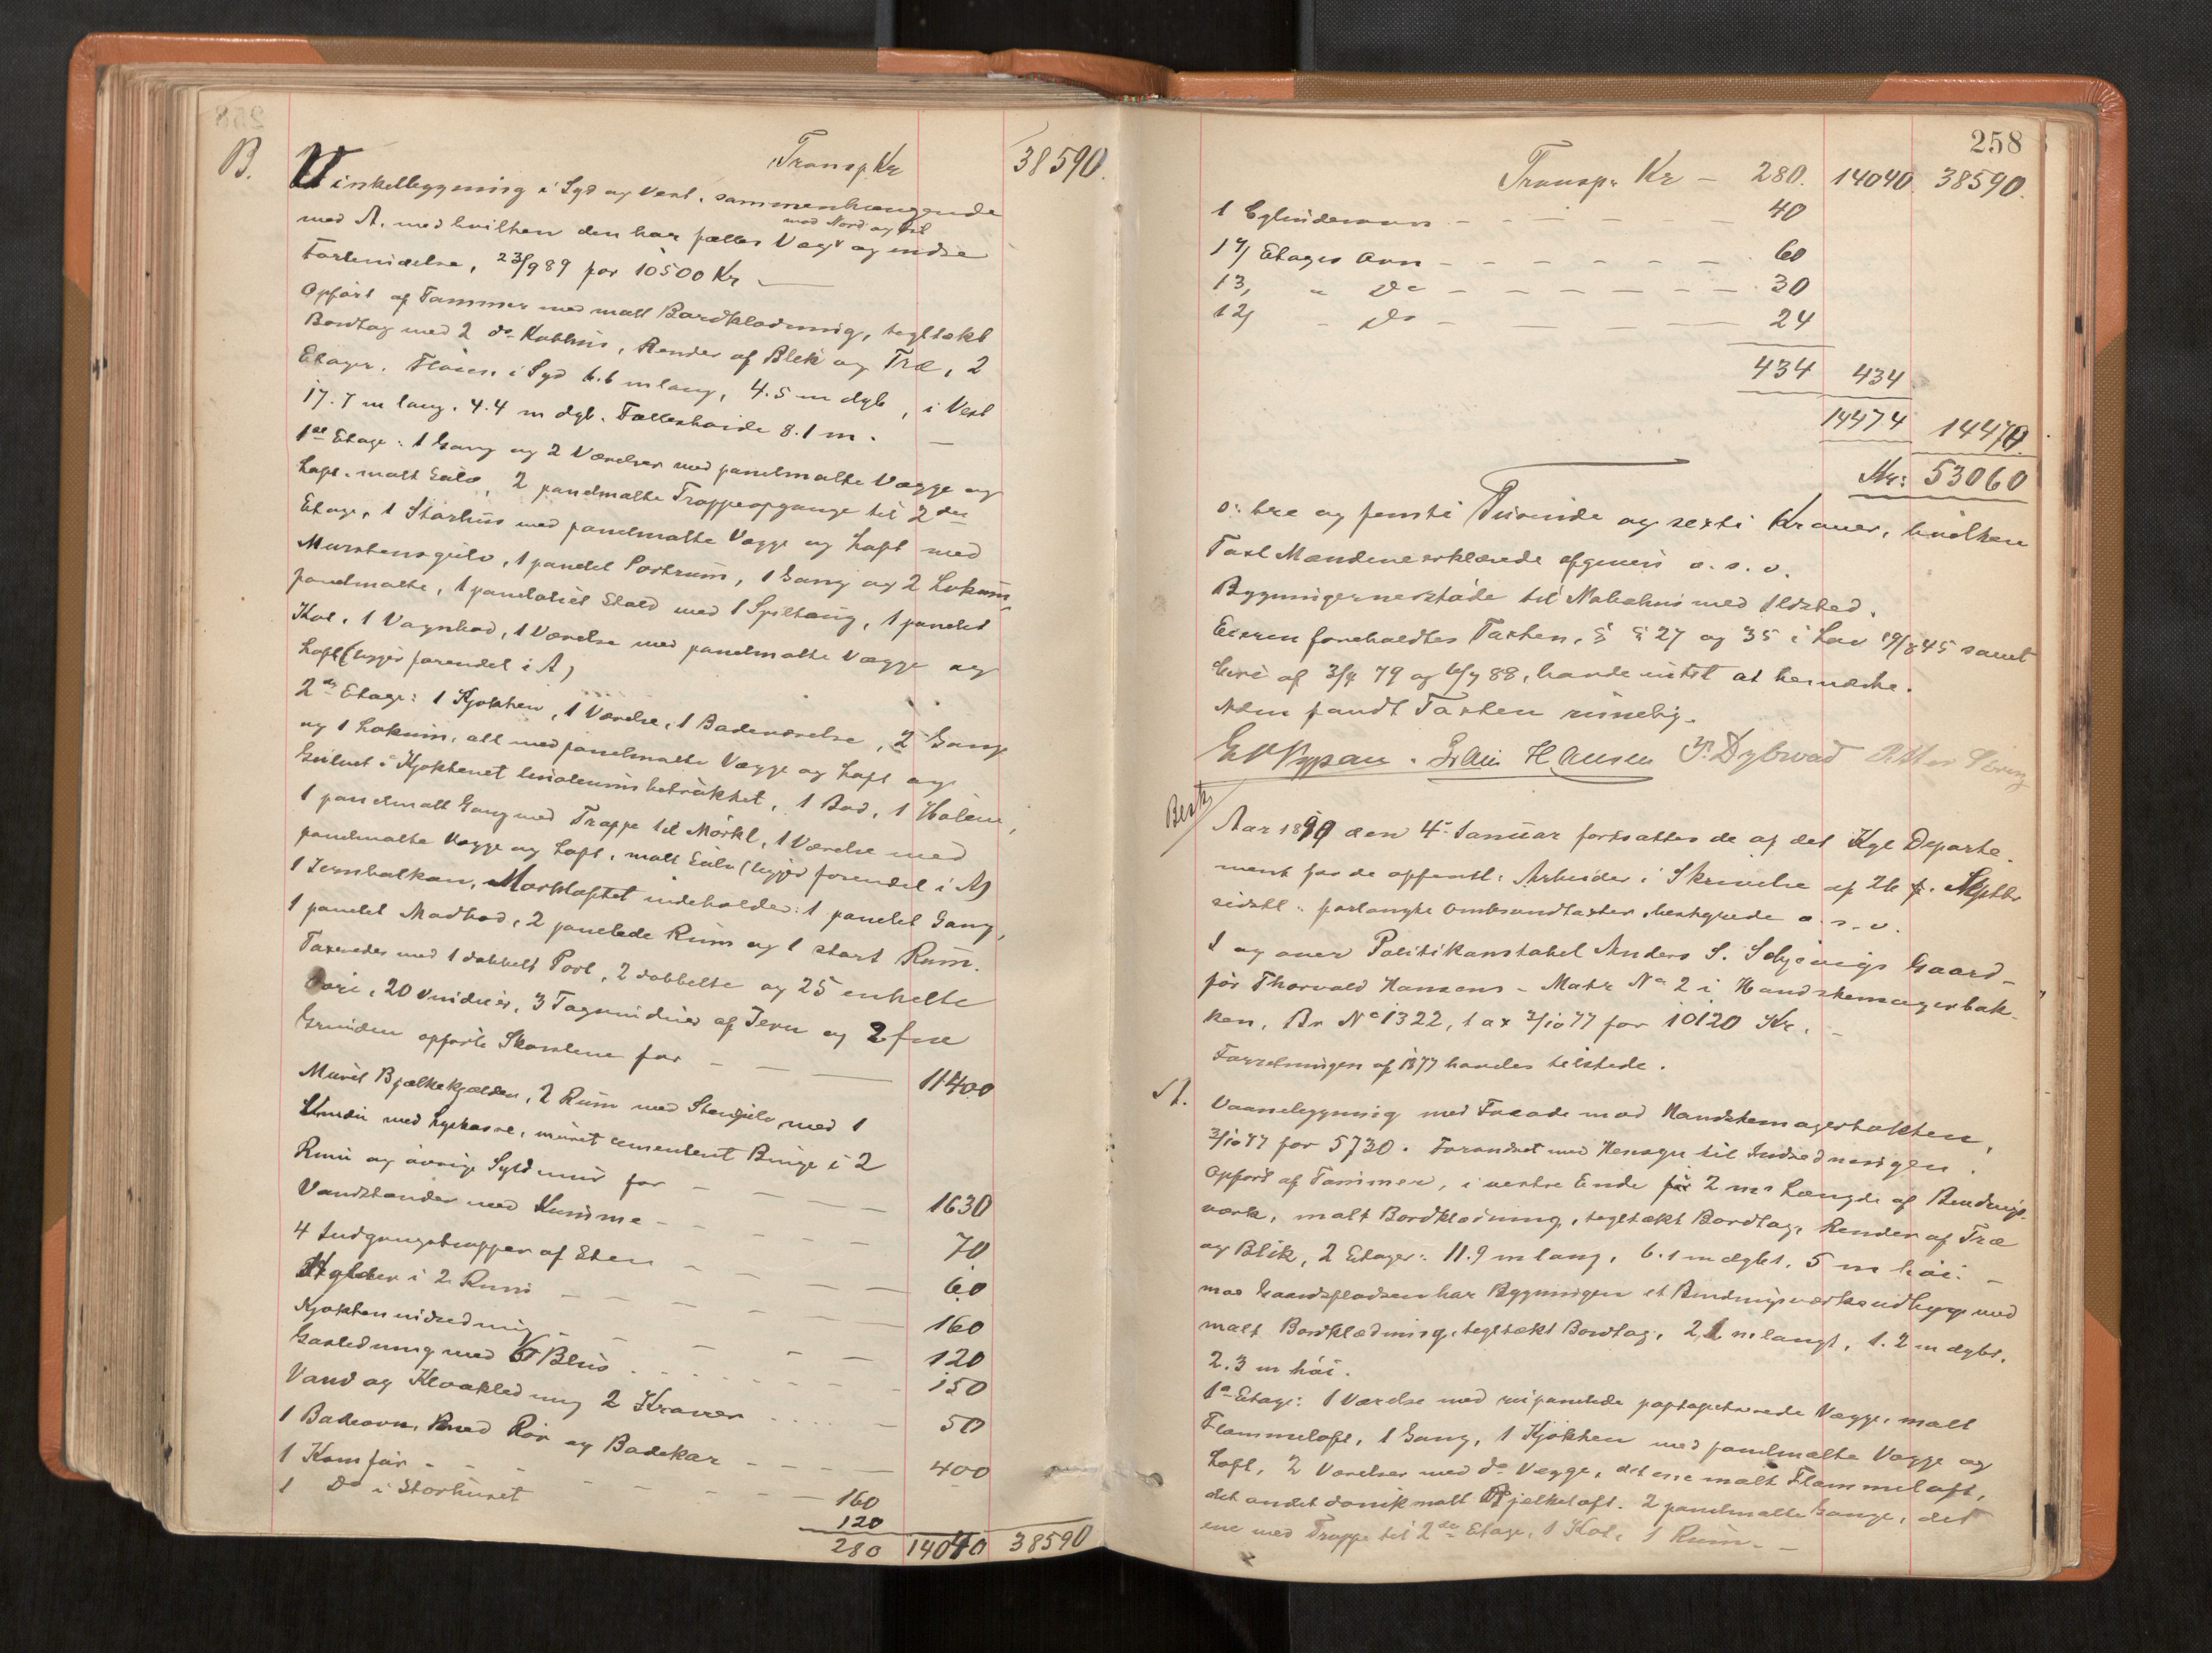 Transp. Kr 38590.
B. Vinkelbygning i Syd og Vest, sammenhængende
med A, med hvilken den har fælles Væg mod Nord og Øst og endre
Forbindelse, 23/9 89 for 10500 Kr.
Opført af Tømmer med malt Bordklædning, tegltækt
Bordtag med 2 do Kobhus, Render af Blik og Træ, 2
Etager. Fløien i Syd 6.6 m lang, 4.5 m dyb, i Vest
17.7 m lang. 4.4 m dyb. Fælleshøide 8.1 m.
1ste Etage: 1 Gang og 2 Værelser med panelmalte Vægge og
Loft. malt Gulv, 2 panelmalte Trappeopgange til 2den
Etage, 1 Storhus med panelmalte Vægge og Loft med
Murstensgulv, 1 panelt Portrum, 1 Gang og 2 Lokum,
panelmalte, 1 paneleret Stald med 1 Spiltoug, 1 panelet
Kot, 1 Vognbod, 1 Værelse med panelmalte Vægge og
Loft (ligger forendel i A)
2den Etage: 1 Kjøkken, 1 Værelse, 1 Badeværelse, 2 Gange
og 1 Lokum, alt med panelmalte Vægge og Loft og
Gulvet i Kjøkkenet linoleumsbetrækket, 1 Bod, 1
1 panelmalt Gang med Trappe til Mørkl, 1 Værelse med
panelmalte Vægge og Loft, malt Gulv (ligger forendel i A)
1 Jernbalkon, Mørkloftet indeholder: 1 panelet Gang,
1 panelet Madbod, 2 panelede Rum og 1 stort Rum.
Taxeredes med 1 dobbelt Port, 2 dobbelte og 25 enkelte
Døre, 20 Vinduer, 3 Tagvinduer af Jern og 2 fra
Grunden opførte Skorstene for - - - 11400
Muret Bjælkekjælder, 2 Rum med Stengulv, med 1
Vindu med Lyskasse, muret cementeret Binge i 2
Rum og øvrige Syldmur for - - - 1630
Vandstender med Kumme - - - 70
4 Indgangstrapper af Sten - - - 60
Hylder i 2 Rum - - - 160
Kjøkkenindredning - - - 120
Gasledning med 6 Blus - - - 150
Vand og Kloakledning 2 Kraner - - - 50
1 Badeovn, med Rør og Badekar - - - 400
1 Komfur - - - 160
1 Do i Storhuset 120
280 14040 38590
258
Transp. Kr - 280. 14040. 38590.
1 Cylinderovn - - - 40
1 4/ Etages Ovn - - - 60
1 3, " Do - - - 30
1 2/ - Do - - - 24
434 434
14474 14470.
Kr: 53060
o: tre og femti Tusinde og sexti Kroner, hvilken
Taxt Mændene erklærede afgiven o. s. v.
Bygningerne støde til Nabohus med Ildsted.
Eieren foreholdtes Taxten, § § 27 og 35 i Lov 19/8 45 samt
Circ af 3/4 79 og 6/7 88, havde intet at bemærke.
Adm fandt Taxten rimelig.
E Nypan. Hansen Dybwad
Besk
Aar 1890 den 4. Januar fortsattes de af det Kgl Departe-
ment for de offentl. Arbeider i Skrivelse af 26 f. Septbr
sidstl. forlangte Omkundtaxter, bestyrede o. s. v.
1 og over Politikonstabel Anders S. Schjevigs Gaard -
før Thorvald Hansens - Matr No 2 i Handskemagerbak-
ken, Br No 1322, tax 3/10 77 for 10120 Kr. -
Forretningen af 1877 havdes tilstede.
A. Vaanebygning med Facade mod Handskemagerbakken,
3/10 77 for 5730. Forandret med Hensyn til Indredningen.
Opført af Tømmer, i vestre Ende for 2 ms Længde af Bindings-
værk, malt Bordklædning, tegltækt Bordtag, Render af Træ
og Blik, 2 Etager: 11.9 m lang, 6.1 m dybt, 5 m høi. -
mod Gaardspladsen har Bygningen et Bindingsværksudbygg med
malt Bordklædning, tegltækt Bordtag, 2,1 m langt, 1.2 m dybt.
2.3 m høi.
1ste Etage: 1 Værelse med panelede paptapetserede Vægge, malt
Flammeloft, 1 Gang, 1 Kjøkken med panelmalte Vægge og
Loft, 2 Værelser med do Vægge, det ene malt Flammeloft,
det andet dorisk malt Bjelkeloft. 2 panelmalte Gange, det
ene med Trappe til 2den Etage, 1 Kot, 1 Rum. -